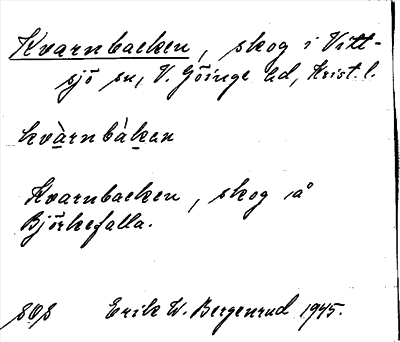 Kvarnbacken, skog i Vitt-
sjö sn, V. Göinge hd, Krist. l.
kvàrnbàkan
Kvarnbacken, skog å
Björkefalla.
SOS Erik W. Bergenrud 1945.